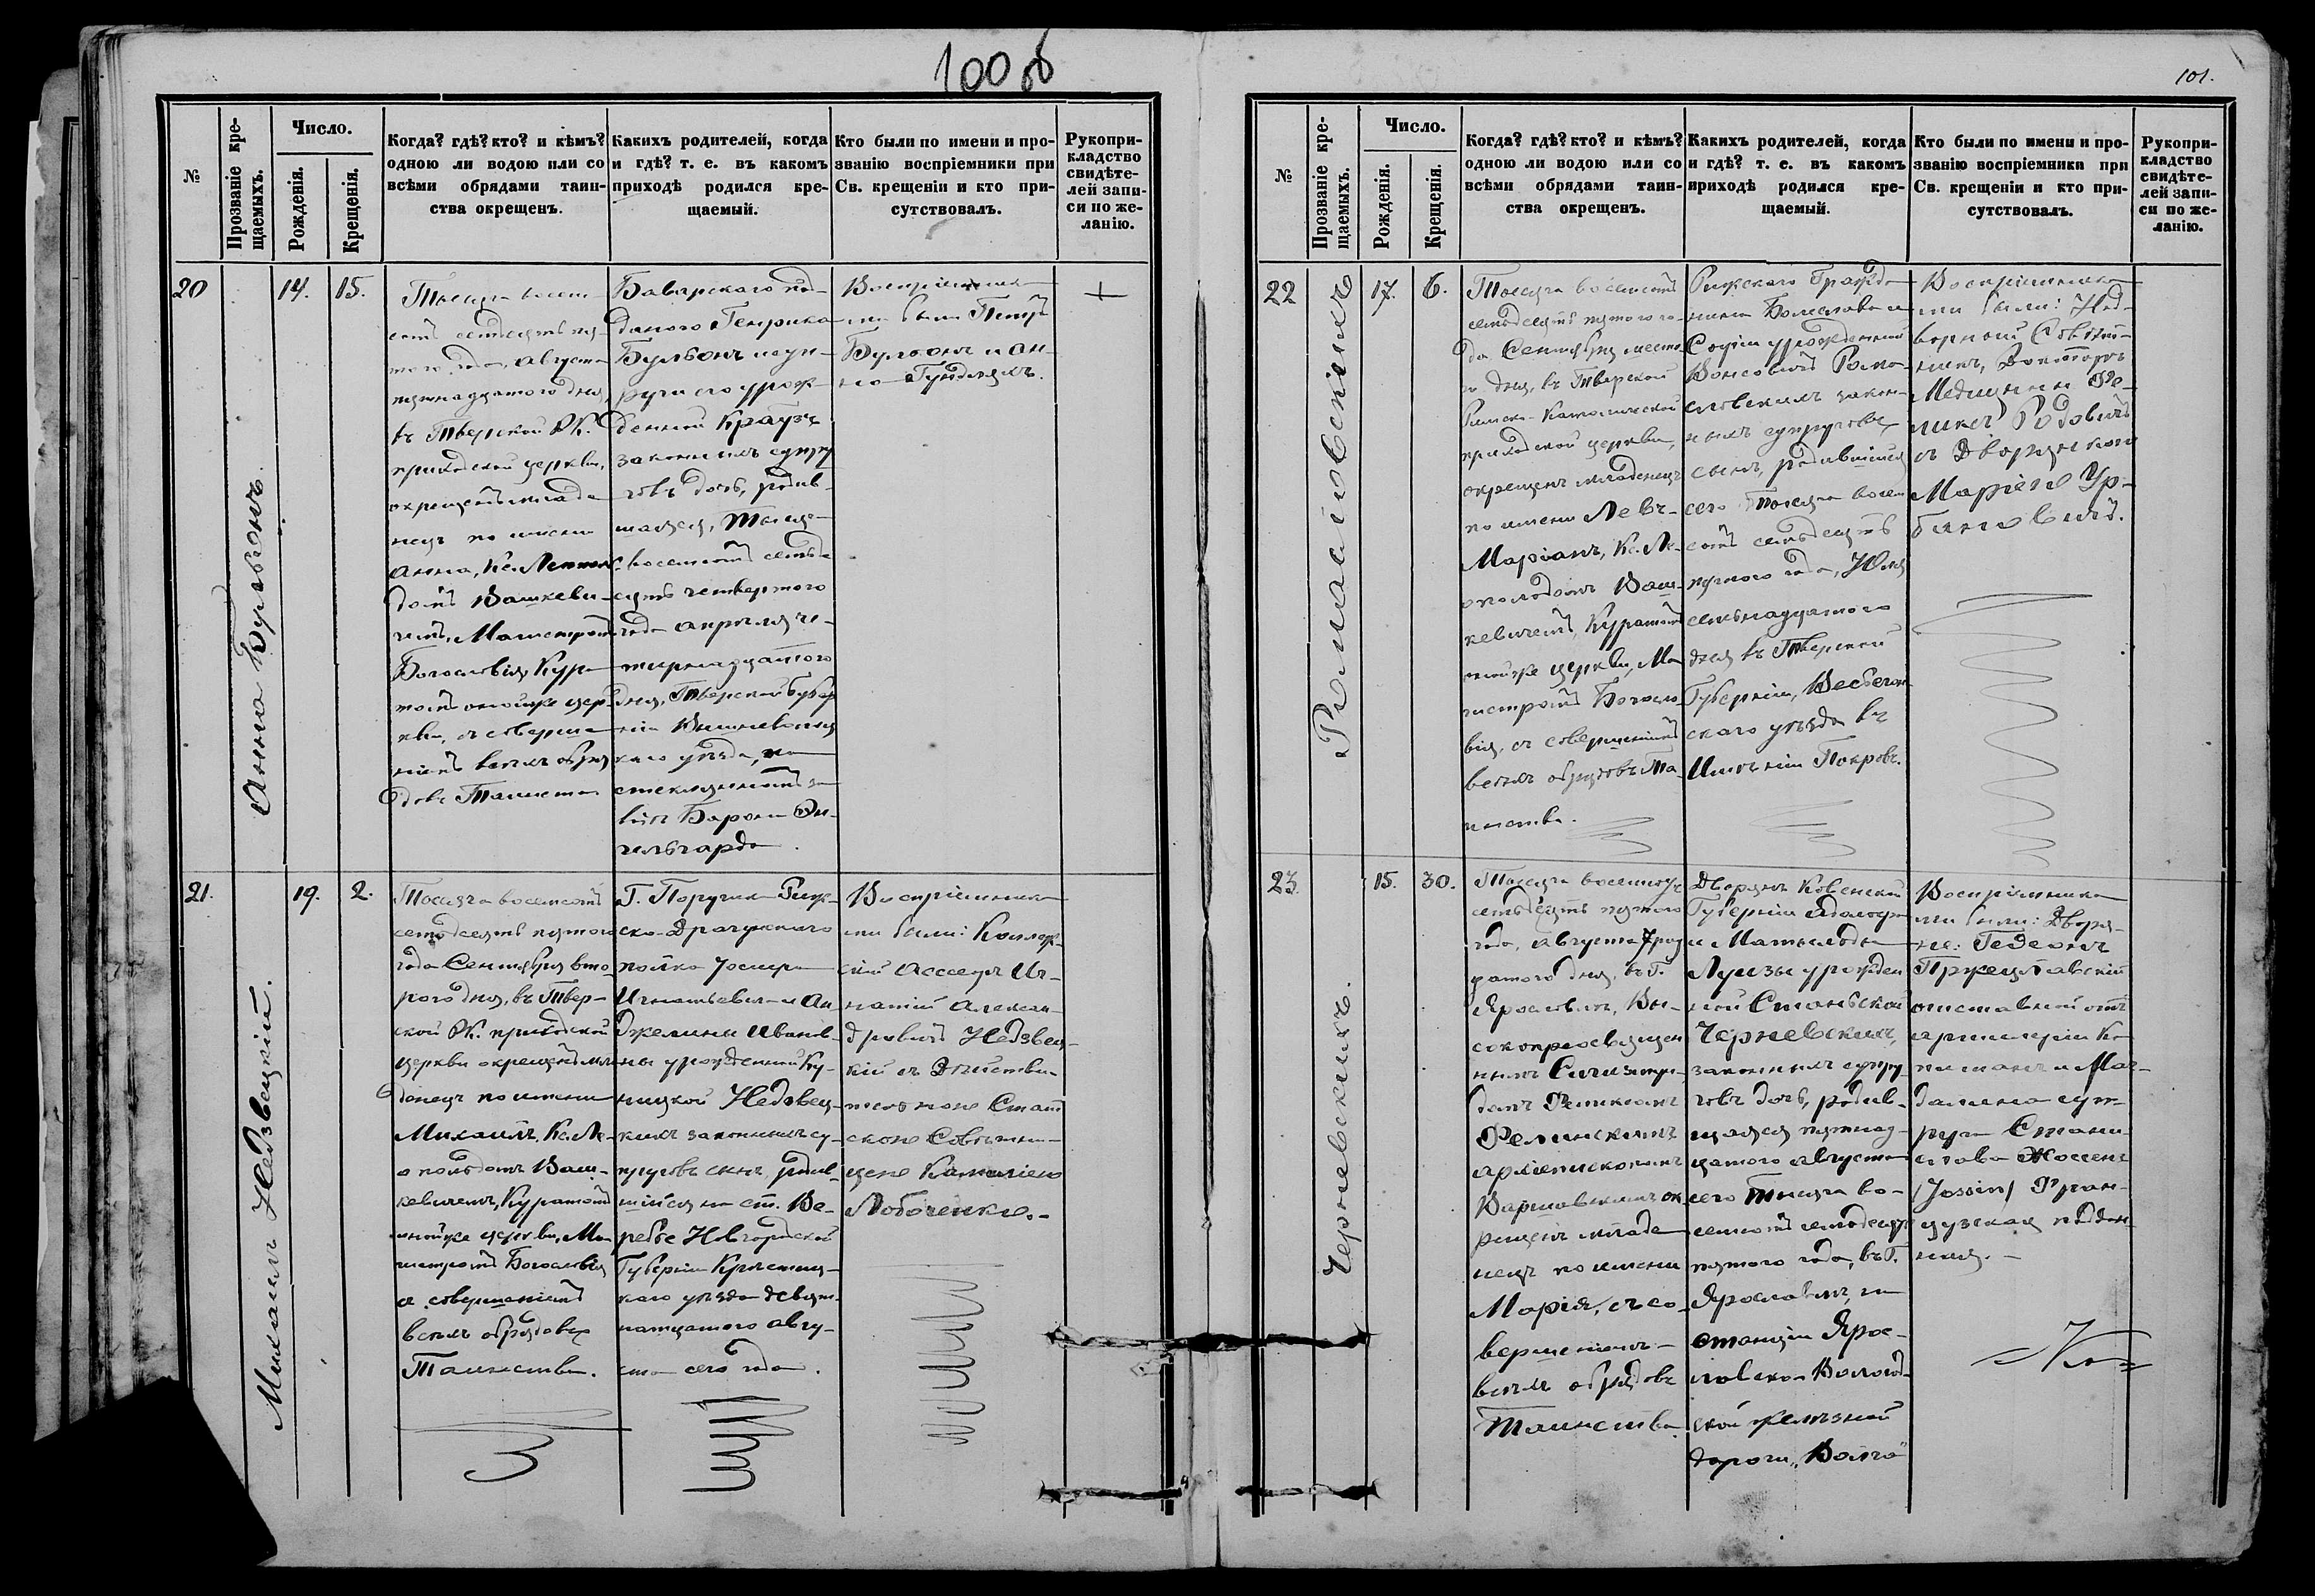 100 об
101.
№
Прозваніе кре-
щаемыхъ.
Число.
Рожденія.
Крещенія.
Когда? гдѣ? кто? и кѣмъ?
одною ли водою или со
всѣми обрядами таин-
ства окрещенъ.
Какихъ родителей, когда
и гдѣ? т. е. въ какомъ
приходѣ родился кре-
щаемый.
Кто были по имени и про-
званію воспріемники при
Св. крещеніи и кто при-
сутствовалъ.
Рукопри-
кладство
свидѣте-
лей запи-
си по же-
ланію.
20
Анна Бульонъ.
14.
15.
Тысяча восем-
сотъ семдесятъ пя-
того года, августа
пятнадцатого дня,
въ Тверской РК.
приходской церкви,
окрещенъ младе-
нецъ по имени
Анна, Кс.
Вашкеви-
чемъ, Магистромъ
Богословія, Кура-
томъ оной же цер-
кви, съ соверше-
ніемъ всѣхъ обря-
довъ Таинства
Баварскаго под-
даного Генриха
Бульонъ и суп-
руги его урож-
денной Краузе
законныхъ супру-
говъ дочь, родив-
шаяся, Тысяча
восемсотъ семьде-
сятъ четвертого
года апрѣля че-
тырнадцатого
дня, Тверской Губер-
ніи Вышневолоц-
каго уѣзда, на
стекляномъ за-
водѣ Барона Эн-
гельгарда.
Воспріемника-
ми были Петръ
Бульонъ и Ан-
на Гундлахъ.
+
21.
Михаилъ Недзвецкій.
19.
2.
Тысяча восемсотъ
семьдесятъ пятого
года Сентября вто-
рого дня, въ Твер-
ской РК. приходской
церкви окрещенъ мла-
денецъ по имени
Михаилъ, Кс. Ле-
опольдомъ Ваш-
кевичемъ, Куратомъ
оной же церкви, Ма-
гистромъ Богословія
съ совершеніемъ
всѣхъ обрядовъ
Таинства.
Г. Поручика Риж-
ско-Драгунскаго
полка Іосифа
Игнатьевича и Ан-
джелины Иванов-
ны урожденной Ку-
ницкой Недзвец-
кихъ законныхъ су-
пруговъ сынъ, родив-
шійся на ст. Ве-
ребье Новгородской
Губерніи Крестец-
каго уѣзда девят-
надцатого авгу-
ста сего года.
Воспріемника-
ми были: Коллеж-
скій Ассесоръ Иг-
натій Алексан-
дровичъ Недзвец-
кій съ Дѣйстви-
тельною Стат-
скою Совѣтни-
цею Камиліею
Лободенко.-
№
Прозваніе кре-
щаемыхъ.
Число.
Рожденія.
Крещенія.
Когда? гдѣ? кто? и кѣмъ?
одною ли водою или со
всѣми обрядами таин-
ства окрещенъ.
Какихъ родителей, когда
и гдѣ? т. е. въ какомъ
приходѣ родился кре-
щаемый.
Кто были по имени и про-
званію воспріемники при
Св. крещеніи и кто при-
сутствовалъ.
Рукопри-
кладство
свидѣте-
лей запи-
си по же-
ланію.
22
17.
6.
Тысяча восемсотъ
семьдесятъ пятого го-
да Сентября шесто-
го дня, въ Тверской
Римско-Католической
приходской церкви,
окрещенъ младенецъ
по имени Левъ-
Маріанъ, Кс. Ле-
опольдомъ Ваш-
кевичемъ, Куратомъ
оной же церкви, Ма-
гистромъ Богосло-
вія, съ совершеніемъ
всѣхъ обрядовъ Та-
инства.
Рижскаго Гражда-
нина Болеслава и
Софіи урожденной
законныхъ
супруговъ
сынъ, родившійся
сего Тысяча восем-
сотъ семьдесятъ
пятого года, Юля
семьнадцатого
дня въ Тверской
Губерніи, Весьегон-
скаго уѣзда въ
Имѣніи Покровѣ.
Воспріемника-
ми были: Над-
ворный Совѣт-
никъ, Докторъ
Медицины Фе-
ликсъ Родовичъ
съ Дворянкою
Маріею Ур-
бановичъ.
23.
Черневскихъ.
15.
30.
Тысяча восемсотъ
семьдесятъ пятого
года, августа
дня, въ Г.
Ярославлѣ, Вы-
сокопреосвящен-
нымъ Сигизмун-
домъ Феликсомъ
Фелинскимъ
архіепископомъ
Варшавскимъ ок-
рещенъ младе-
нецъ по имени
Марія, съ со-
вершеніемъ
всѣхъ обрядовъ
Таинства
Дворянъ Ковенской
Губерніи Адольфа
и Матильды-
Луизы урожден-
ной
Черневскихъ,
законныхъ супру-
говъ дочь, родив-
шаяся пятнад-
цатого августа
сего тысяча во-
семсотъ семьдесятъ
пятого года, въ Г.
Ярославлѣ, на
станціи Ярос-
лавско-Вологод-
ской желѣзной
дороги „Волга"
Воспріемника-
ми были: Дворя-
не: Гедеонъ
Пржецлавскій
отставной отъ
артилеріи Ка-
питанъ и Маг-
далена суп-
руга Стани-
слава Жоссенъ
/Jossin/ Фран-
цузская поддан-
ная.-